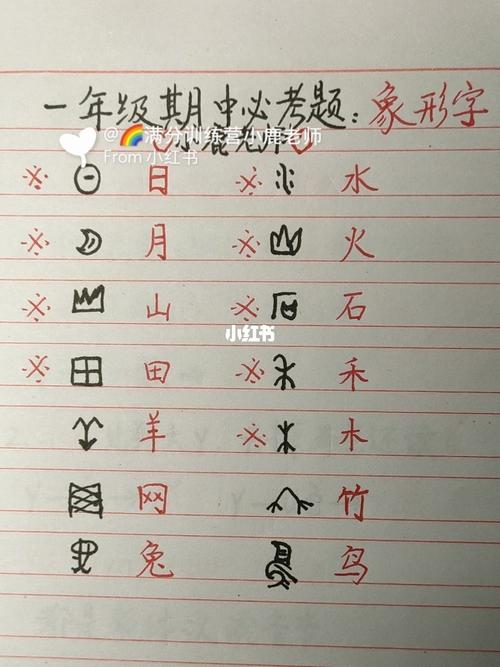 一年级期中必考题：象形字
小鹿老师
@🌈满分训练营小鹿老师
From 小红书
※ 日 ※ 水
※ 月 ※ 火
※ 山 ※ 石
小红书
※ 田 ※ 禾
羊 ※ 木
网 竹
兔 鸟